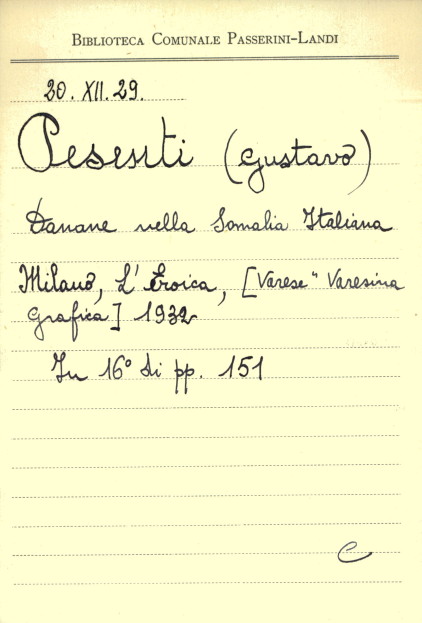 BIBLIOTECA COMUNALE PASSERINI-LANDI
20. XII. 29.
Pesenti (Gustavo)
Danane nella Somalia Italiana
Milano, L' Eroica, [Varese "Varesina
Grafica] 1932
In 16° di pp. 151
C